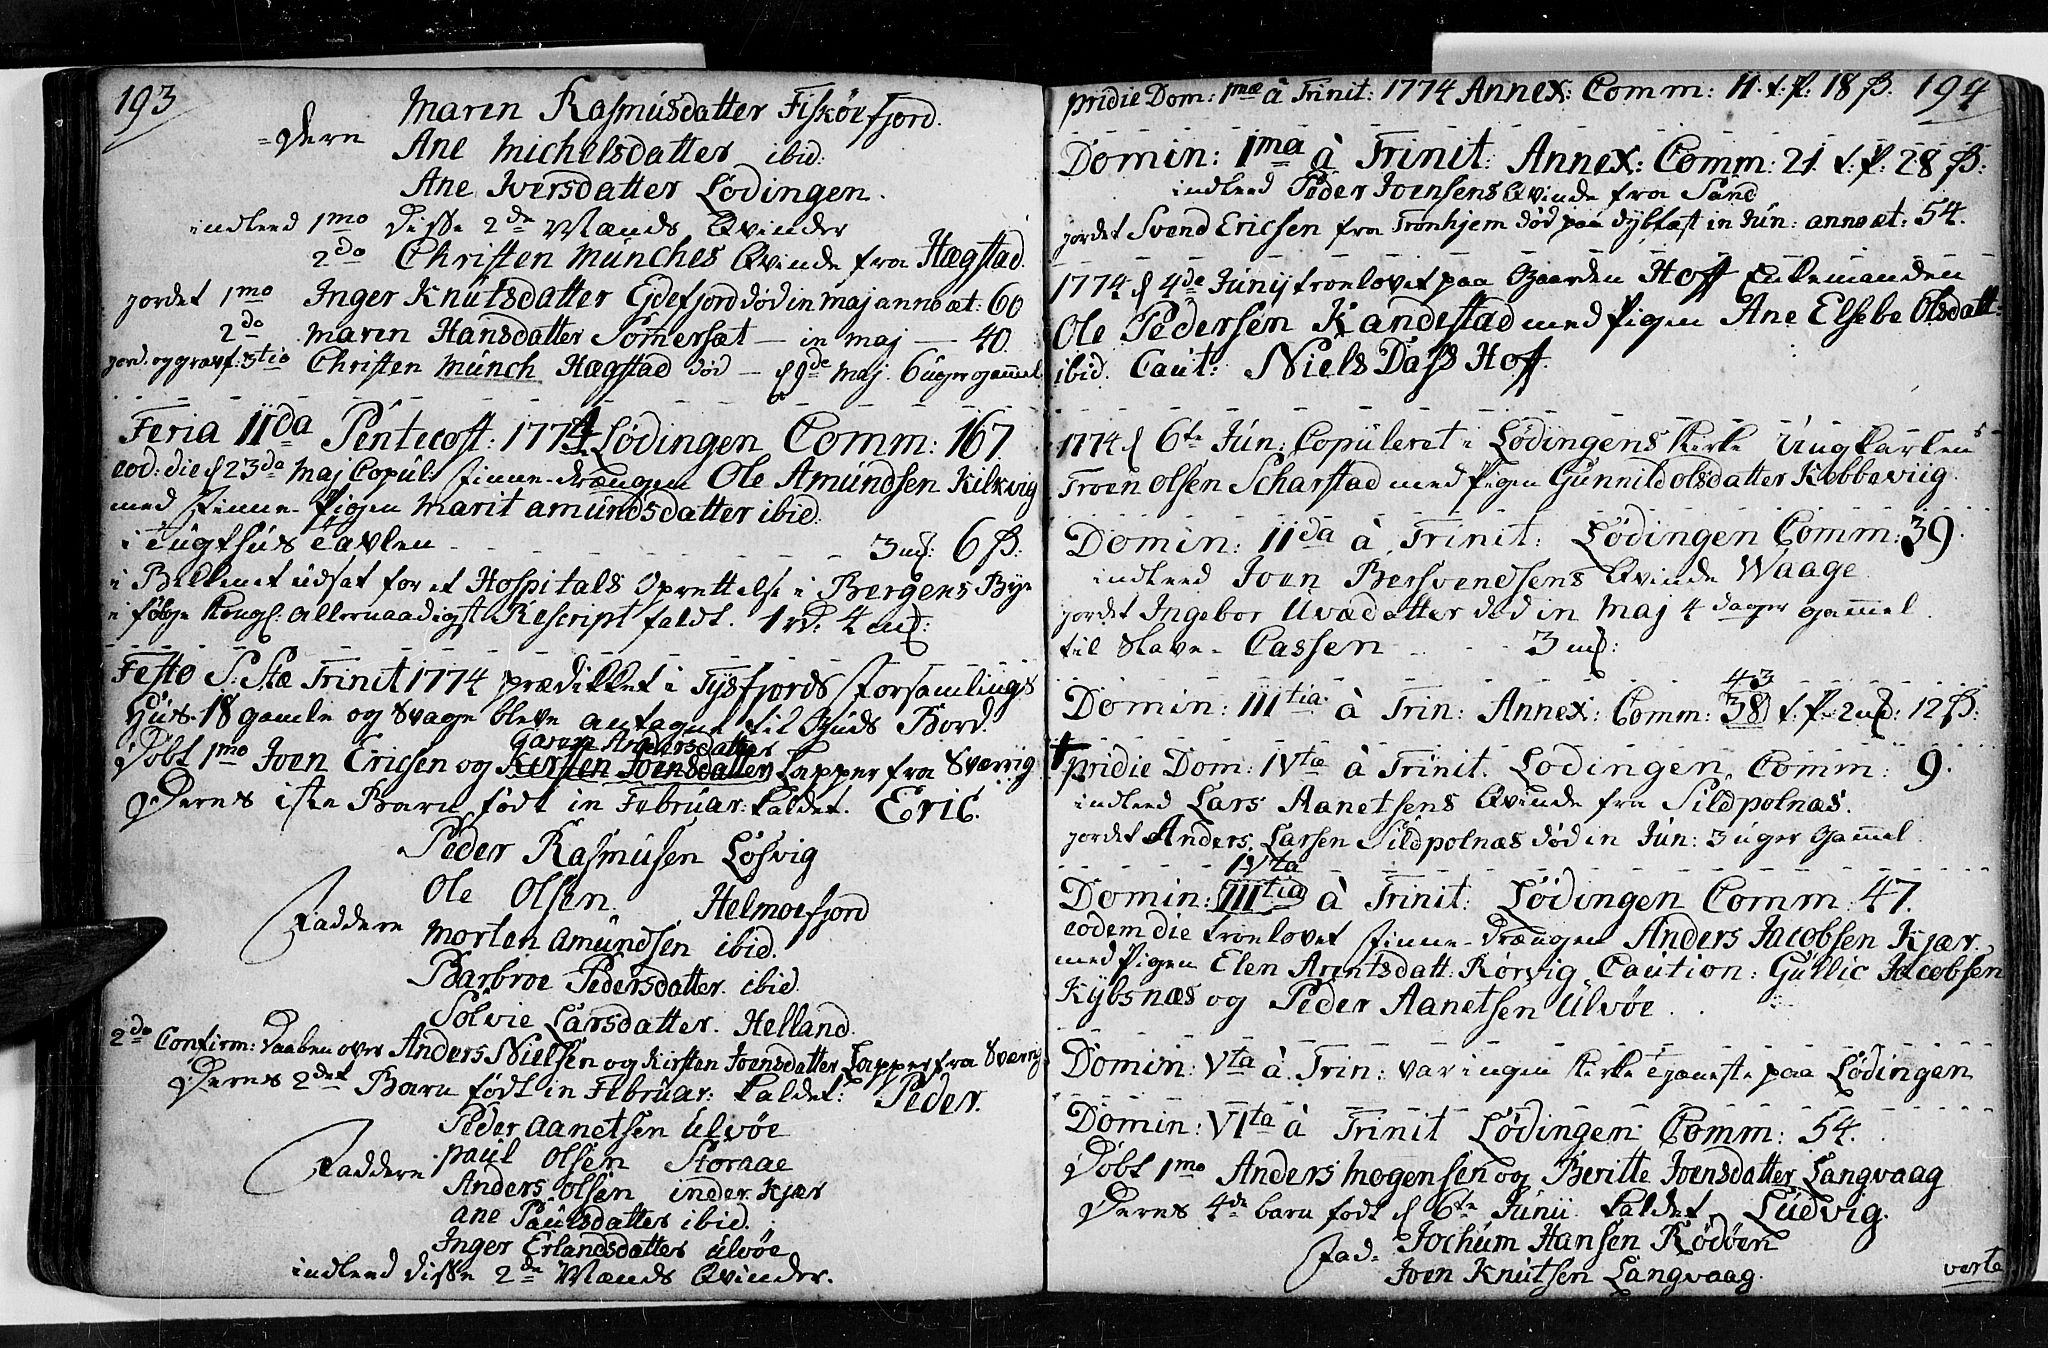 193
Maren Rasmusdatter Fiskøefjord.
=dere Ane Michelsdatter ibid:
Ane Iversdatter Lødingen.
indleed 1mo disse 2de Mænds Qvinder
2do Christen Munches Qvinde fra Hægstad.
jordet 1mo Inger Knutsdatter Ejdefjord død in Maj anno æt: 60
2do Maren Hansdatter Sommersæt — in Maj — 40.
jord. og græsf. 3tio Christen Münch Hægstad død — d 9de Maj. 6 uger gammel
Feria IIda Pentecost: 1774 Lødingen Comm: 167.
eod: die d 23de Maj Copul: Finne-Drængen Ole Amundsen Kilkvig
med Finne-Pigen Marit Amundsdatter ibid.
i Tugthus Tavlen - - - 3 mk: 6 ß:
i Bekkenet udsat for et Hospitals Oprettelse i Bergens Bye
i følge Kongl: allernaadigst Rescript faldt. 1 rd: 4 mk:
Festo S: Stæ Trinit 1774 prædikket i Tysfjords Forsamlings
Huus. 18 gamle og svage bleve antagne til Guds Bord.
Gavna Andersdatter
Døbt 1mo Joen Ericsen og Kirsten Joensdatter Lapper fra Sverrig
Deres 1ste Barn født in Februar: kaldet. Eric.
Peder Rasmusen Løsvig
Ole Olsen Helmoefjord
Faddere Morten Amundsen ibid.
Barbroe Pedersdatter. ibid.
Solvie Larsdatter. Helland.
2do Confirm: Daaben over Anders Nielsen og Kirsten Joensdatter Lapper fra Sverrig
Deres 2det Barn født in Februar: kaldet: Peder.
Peder Aanetsen Ulvøe
Faddere Paul Olsen Storaae
Anders Olsen inder Kjær
Ane Paulsdatter ibid.
Inger Erlandsdatter Ulvøe
indleed disse 2de Mænds Qvinder.
pridie Dom: 1mæ à Trinit: 1774 Annex: Comm: 11. t: p: 18 ß. 194
Domin: 1ma à Trinit: Annex: Comm: 21. t: p: 28 ß:
indleed Peder Joensens Qvinde fra Sand
jordet Svend Ericsen fra Tronhjem død paa Dybfæst in Jun: anno æt: 54.
1774 d 4de Junij troelovet paa Gaarden Hoff Enkemanden
Ole Pedersen Kandestad med Pigen Ane Elsebe Olsdatt:
ibid. Caut: Niels Dass Hoff.
1774 d 6te Jun: Copuleret i Lødingens Kirke Ungkarlen
Troen Olsen Scharstad med Pigen Gunnild Olsdatter Kobbeviig.
Domin: IIda à Trinit: Lødingen Comm: 39.
indleed Joen Bersvendsens Qvinde Waage
jordet Ingebor Uvædatter død in Maj 4 dager gammel.
til Slave-Cassen - - - 3 mk:
43
Domin: IIItia à Trin: Annex: Comm: 38 t: p: 2 mk: 12 ß:
† pridie Dom: IVtæ à Trinit. Lødingen Comm: 9.
indleed Lars Aanetsens Qvinde fra Sildpolnæs.
jordet Anders Larsen Sildpolnæs død in Jun: 3 uger Gammel.
IVta
Domin: IIItia à Trinit: Lødingen Comm: 47.
eodem die troelovet Finne-Drængen Anders Jacobsen Kjær.
med Pigen Elen Arentsdatt: Rørvig Caution: Gullic Jacobsen
Kybsnæs og Peder Aanetsen Ulvøe.
Domin: Vta à Trin: var ingen Kirke Tjeneste paa Lødingen
Domin: VIta à Trinit Lødingen Comm: 54.
Døbt 1mo Anders Mogensen og Beritte Joensdatter Langvaag
Deres 4de barn født d 6te Junii kaldet Ludvig.
Fad: Jochum Hansen Rødøen
Joen Knutsen Langvaag.
verte